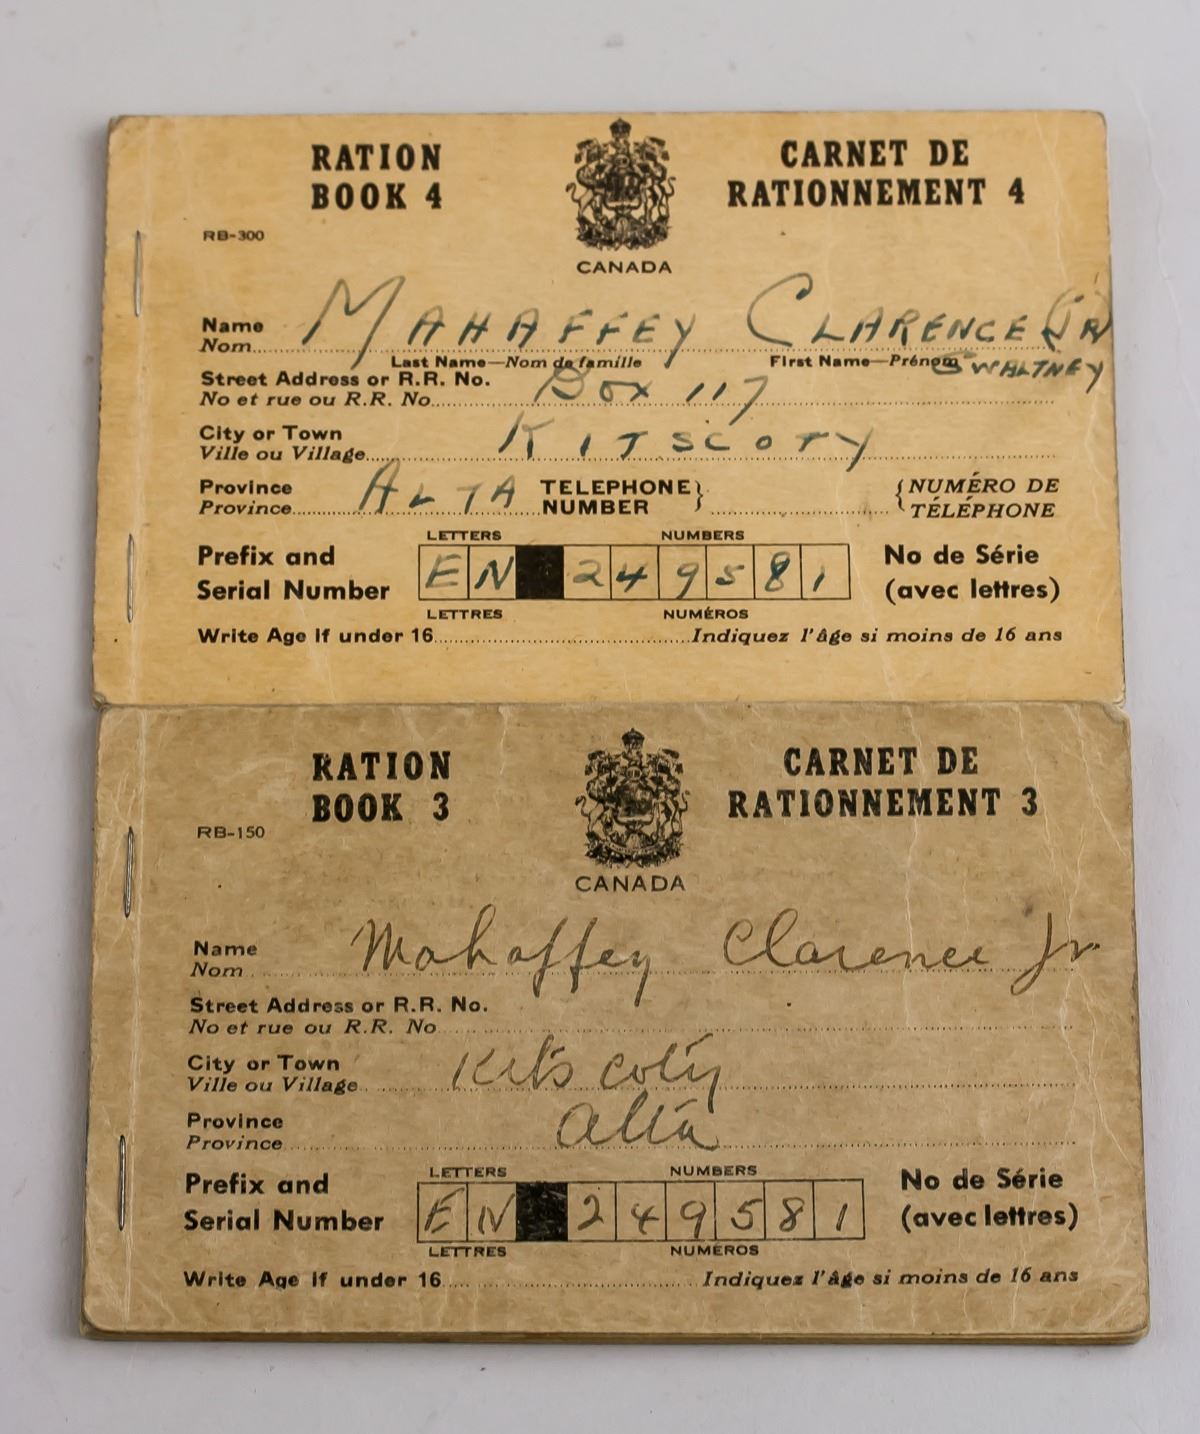 RATION CARNET DE
BOOK 4 RATIONNEMENT 4
RB-300
CANADA
Name MAHAFFEY CLARENCE (JR)
Nom
Last Name—Nom de famille First Name—Prénom SWALTNEY
Street Address or R.R. No. Box 117
No et rue ou R.R. No
City or Town KITSCOTY
Ville ou Village
Province ALTA TELEPHONE} {NUMÉRO DE
Province NUMBER TÉLÉPHONE
LETTERS NUMBERS
Prefix and No de Série
EN 249581
Serial Number (avec lettres)
LETTRES NUMÉROS
Write Age if under 16 Indiquez l'âge si moins de 16 ans
RATION CARNET DE
BOOK 3 RATIONNEMENT 3
RB-150
CANADA
Name Mahaffey Clarence Jr.
Nom
Street Address or R.R. No.
No et rue ou R.R. No
City or Town Kitscoty
Ville ou Village
Province Alta
Province
LETTERS NUMBERS
Prefix and No de Série
EN 249581
Serial Number (avec lettres)
LETTRES NUMÉROS
Write Age if under 16 Indiquez l'âge si moins de 16 ans